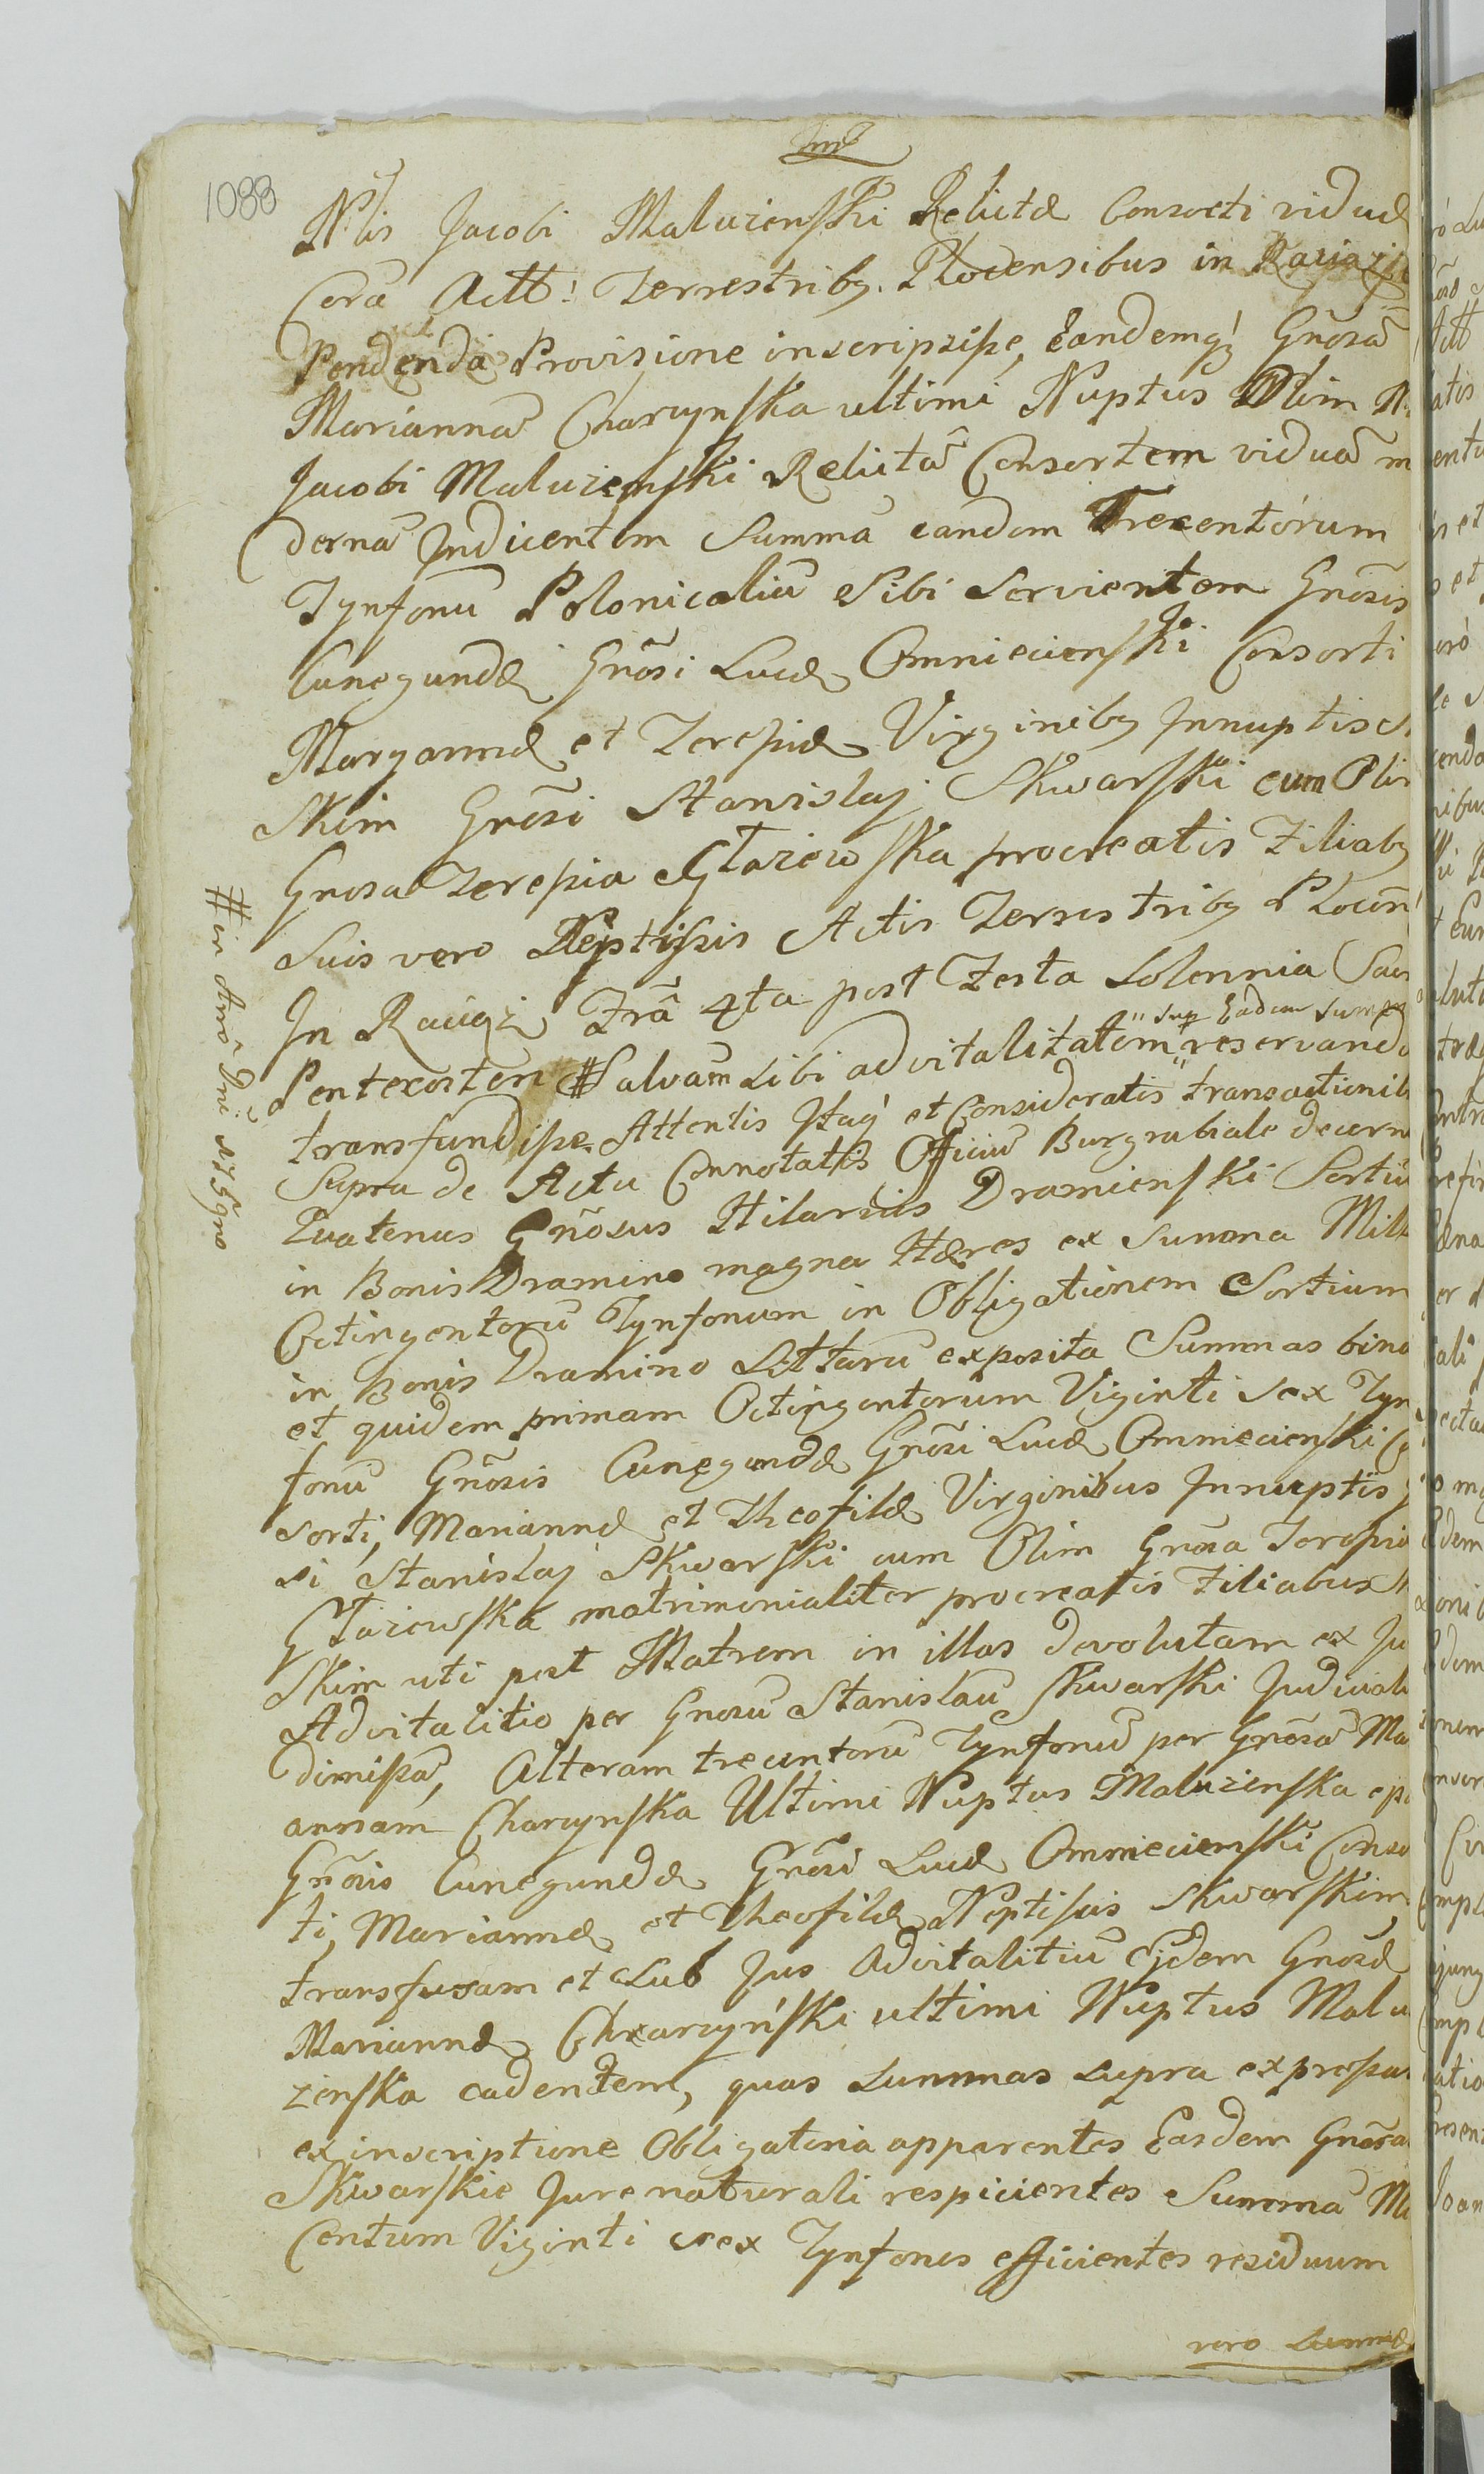 1083
Nlis Jacobi Maluzenski Relictæ Consorti viduæ
Corã Actt: Terrestriby Plocensibus in Raciąż
Pendenda Provisione inscripsisse, Eandemq' Gnosã
Mariannã Charzynska ultimi Nuptus Olim N
Jacobi Maluzenski Relictã Consortem viduã m
dernã Indicentem Summã eandem Trecentorum
Tynfonũ Polonicaliũ Sibi Servientem Gnosis
Cunegundæ Gnõsi Lucæ Omniecienski Consorti
Maryannæ et Teresiæ Virginiby Innuptis S
Skim Gnõsi Stanislaj Skwarski cum Olim
Gnosa Teresia Głazewska procreatis Filiaby
Suis vero Neptissis Actis Terrestriby Plocen
In Raciąż Frã 4ta post Festa Solennia Sacr
Pentecosten # Salvam Sibi advitalitatem " sup Eadem Summa " reservando
transfundisse. Attentis Itaq' et Consideratis transactionib
Supra de Actu Connotatis Officiũ Burgrabiale decern
Quatenus Gnõsus Hilarius Dramienski Sortiũ
in Bonis Dramino magna Hæres ex Summa Mille
Octingentorũ Tynfonum in Obligationem Sortium
in Bonis Dramino Littarũ exposita Summas bina
et quidem primam Octingentorum Viginti sex Tyn
fonũ Gnõsis Cunegundæ Gnõsi Lucæ Omniecienski Con
sorti, Mariannæ et Theofilæ Virginibus Innuptis g
si Stanislaj Skwarski cum Olim Gnosa Teresia
Głazewska matrimonialiter procreatis Filiabus
Skim uti post Matrem in illas devolutam ex Ju
Advitalitio per Gnosũ Stanislaũ Skwarski Judiciali
dimissã, Alteram trecentorũ Tynfonũ per Gnõsã Ma
annam Charzynska Ultimi Nuptus Maluzenska
Gnõsis Cunegundæ Gnõsi Lucæ Omniecienski Conso
ti, Mariannæ et Theofilæ Neptissis Skwarskim
transfusam et Sub Jus Advitalitiũ Ejdem Gnosæ
Mariannæ Charzyński ultimi Nuptus Malu
zenska cadentem, quas Summas supra expressas
ex inscriptione Obligatoria apparentes Easdem Gnõsa
Skwarskie Jure naturali respicientes Summã Mi
Centum Viginti sex Tynfones efficientes residuum
vero Summæ
# in Anno Dni